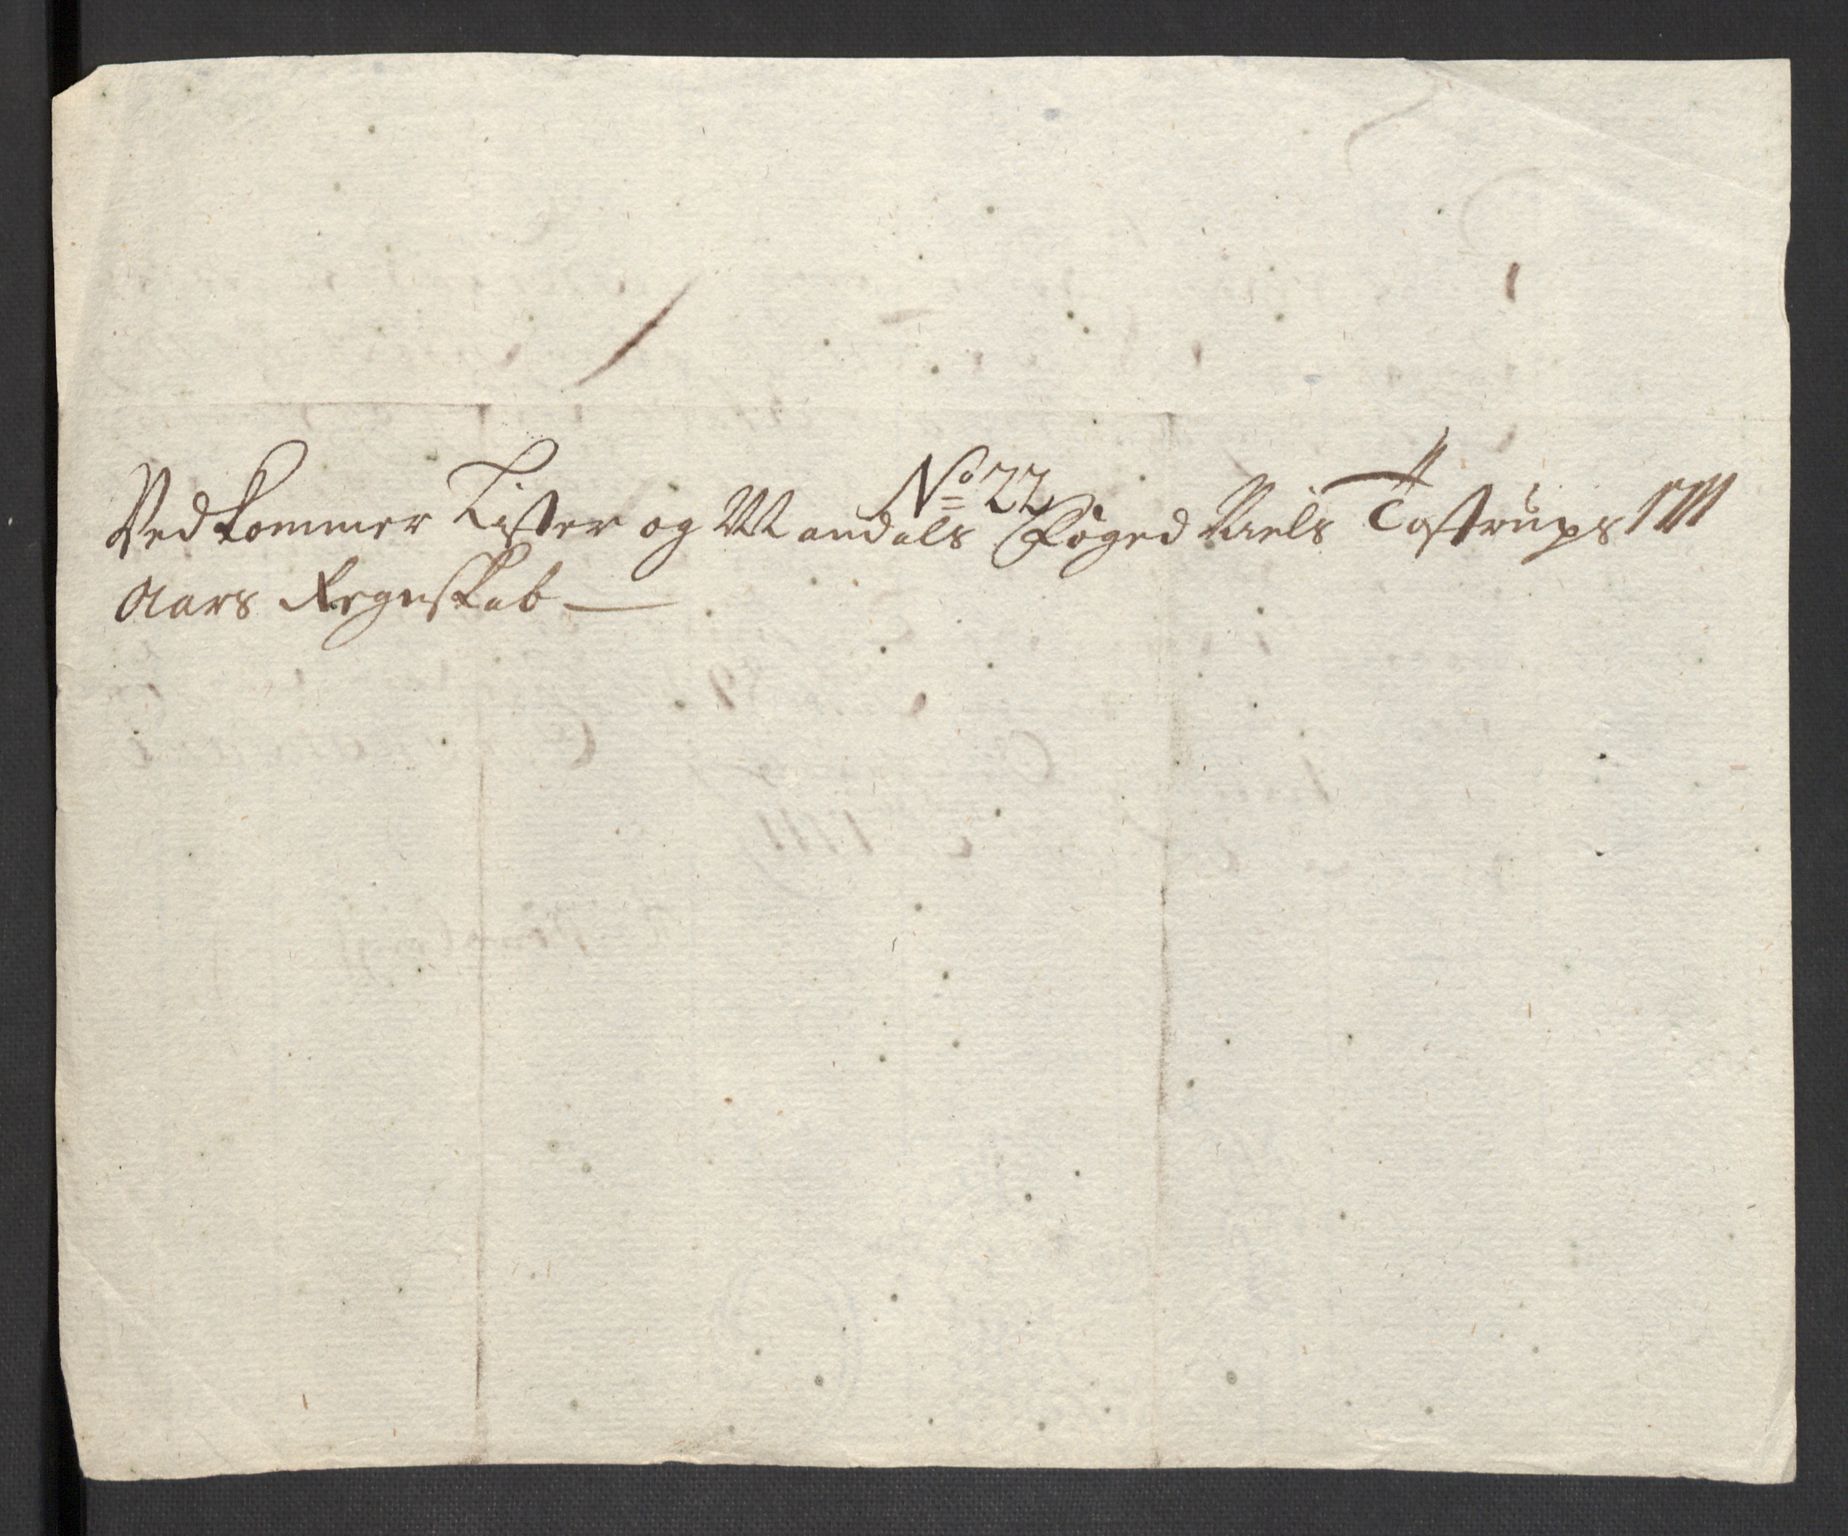 No 22
Vedkommer Lister og Mandals Foged Niels Tostrups 1711
Aars Regnskab